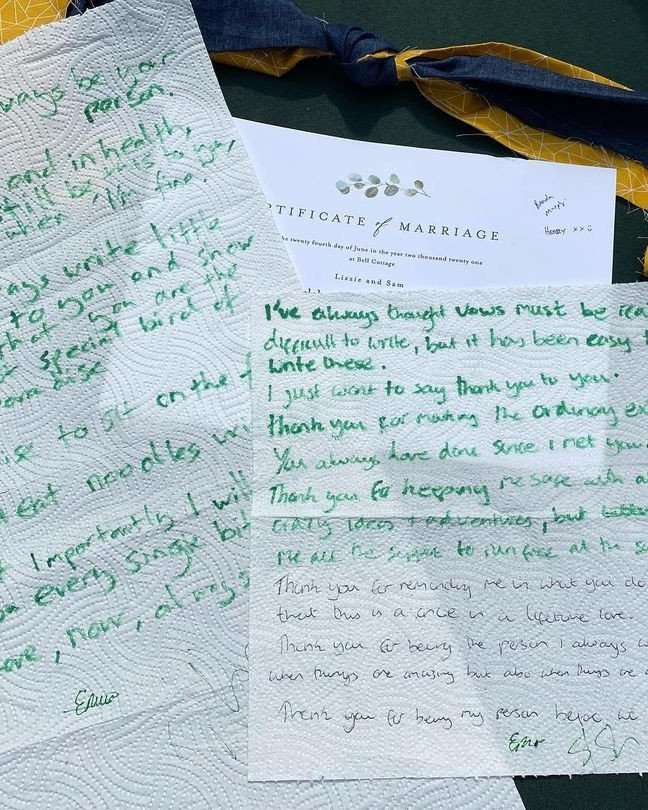 ways be your
person.
and in health,
when
fine.
ways write little
to you and show
that you are the
special bird of
ise to sit on the f
eat noodles wi
t importantly I will
every single bit
, now, always
CERTIFICATE of MARRIAGE
the twenty fourth day of June in the year two thousand twenty one
at Bell Cottage
Lizzie and Sam
Henry xx
I've always thought vows must be rea
difficult to write, but it has been easy t
write these.
I just want to say thank you to you.
Thank you for making the ordinary ex
You always have done since I met you
Thank you for keeping me safe with a
crazy ideas + adventures, but
me all the support to run free at the s
Thank you for reminding me in what you do
that this is a once in a lifetime love.
Thank you for being the person I always w
when things are amazing but also when things are
Thank you for being my person